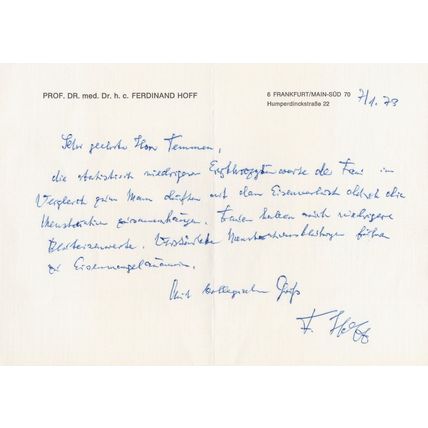 PROF. DR. med. Dr. h. c. FERDINAND HOFF
6 FRANKFURT/MAIN-SÜD 70
Humperdinckstraße 22
7/1.79
Sehr geehrter Herr Temmen,
die statistisch niedrigeren Erythrozytenwerte der Frau im
Vergleich zum Mann dürften mit dem Eisenverlust durch die
Menstruation zusammenhängen. Frauen haben auch niedrigere
Bluteisenwerte. Verstärkte Menstruationsblutungen führen
zu Eisenmangelanämien.
Mit kollegialem Gruß
F. Hoff